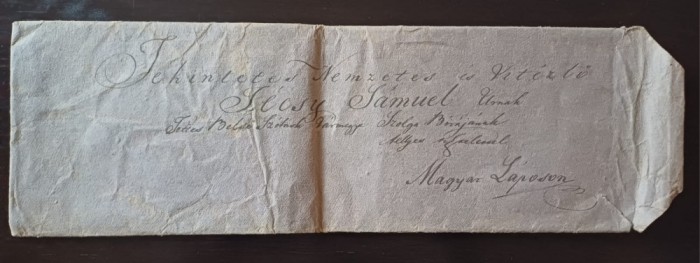 Tekintetes Nemzetes és Vitézlő
Sámuel Urnak
Belső Szólnok Vármegye Szolga Birájának
Magyar Láposon